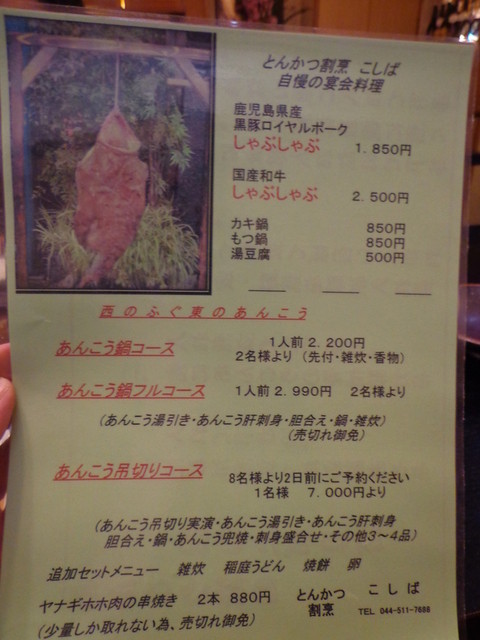 とんかつ割烹 こしば
自慢の宴会料理
鹿児島県産
黒豚ロイヤルポーク
しゃぶしゃぶ 1.850円
国産和牛
しゃぶしゃぶ 2.500円
カキ鍋 850円
もつ鍋 850円
湯豆腐 500円
西のふぐ東のあんこう
あんこう鍋コース 1人前2.200円
2名様より (先付・雑炊・香物)
あんこう鍋フルコース 1人前2.990円 2名様より
(あんこう湯引き・あんこう肝刺身・胆合え・鍋・雑炊)
(売切れ御免)
あんこう吊切りコース 8名様より2日前にご予約ください
1名様 7.000円より
(あんこう吊切り実演・あんこう湯引・あんこう肝刺身
胆合え・鍋・あんこう兜焼・刺身盛合せ・その他3～4品)
追加セットメニュー 雑炊 稲庭うどん 焼餅 卵
ヤナギホホ肉の串焼き 2本 880円
(少量しか取れない為、売切れ御免)
とんかつ割烹 こしば
TEL 044-511-7686